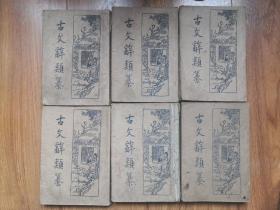 古文辭類纂
古文辭類纂
古文辭類纂
古文辭類纂
古文辭類纂
古文辭類纂